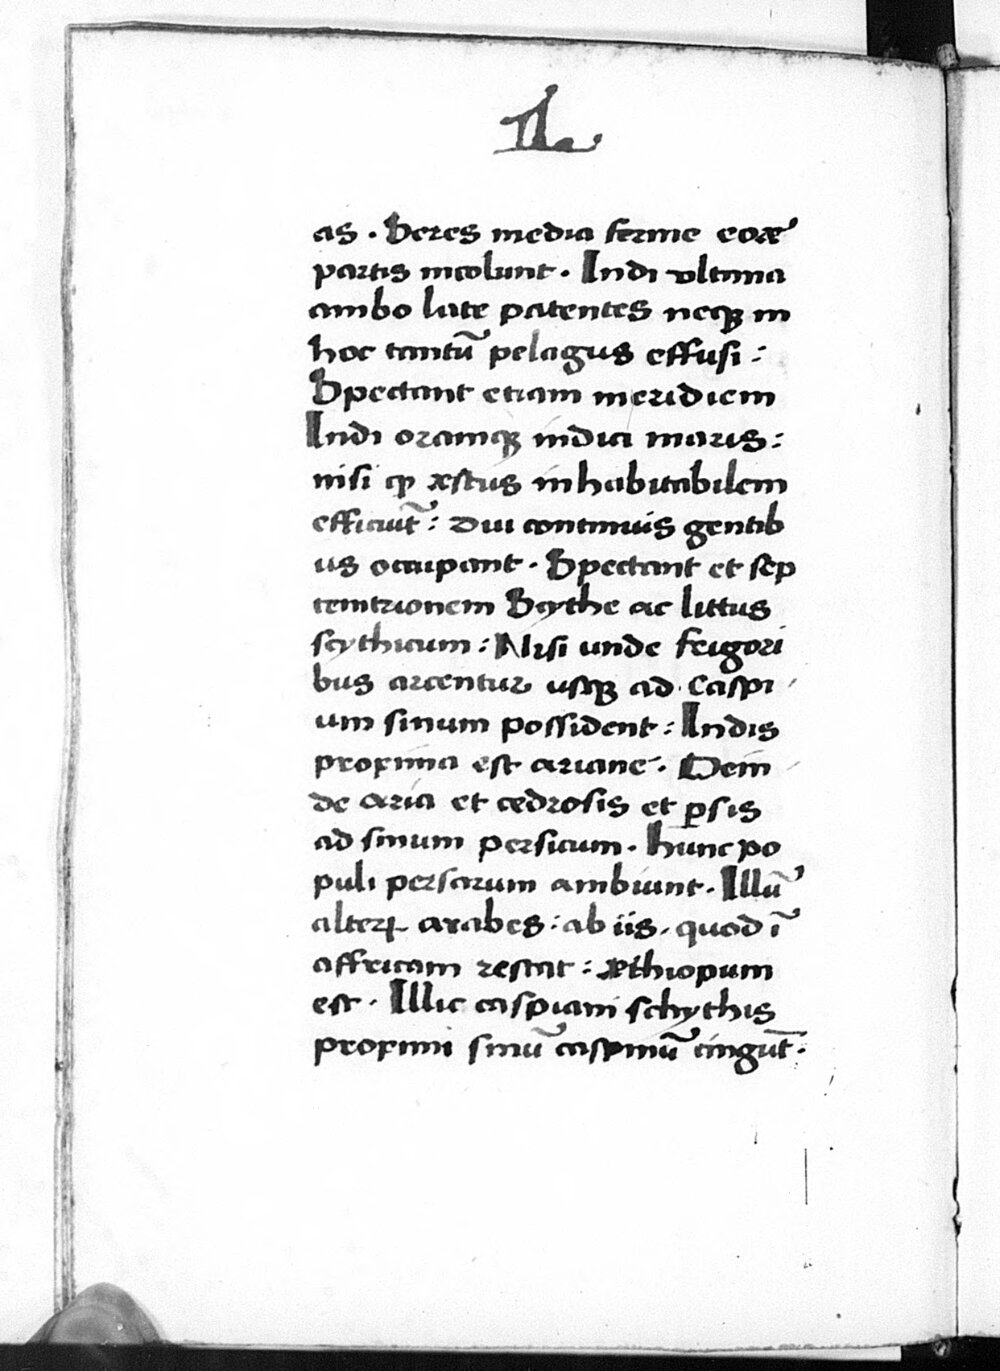 as. Seres media ferme eoæ
partis incolunt. Indi ultima
ambo late patentes neqꝫ in
hoc tantū pelagus effusi:
Spectant etiam meridiem
Indi oramqꝫ indici maris:
nisi qͥ æstus inhabitabilem
efficiūt: Diu continuis gentib
us occupant. Spectant et sep
temtrionem Scythe ac littus
scythicum: Nisi unde frigori
bus arcentur usqꝫ ad Caspi
um sinum possident: Indis
proxima est ariane. Dein
de aria et cedrosis et ꝑsis
ad sinum persicum. hunc po
puli persarum ambiunt. Illū
alterꝝ arabes: ab iis. quod ī
affricam restat: Æthiopum
est. Illic caspiani schythis
proximi sinū caspiniū cingūt.